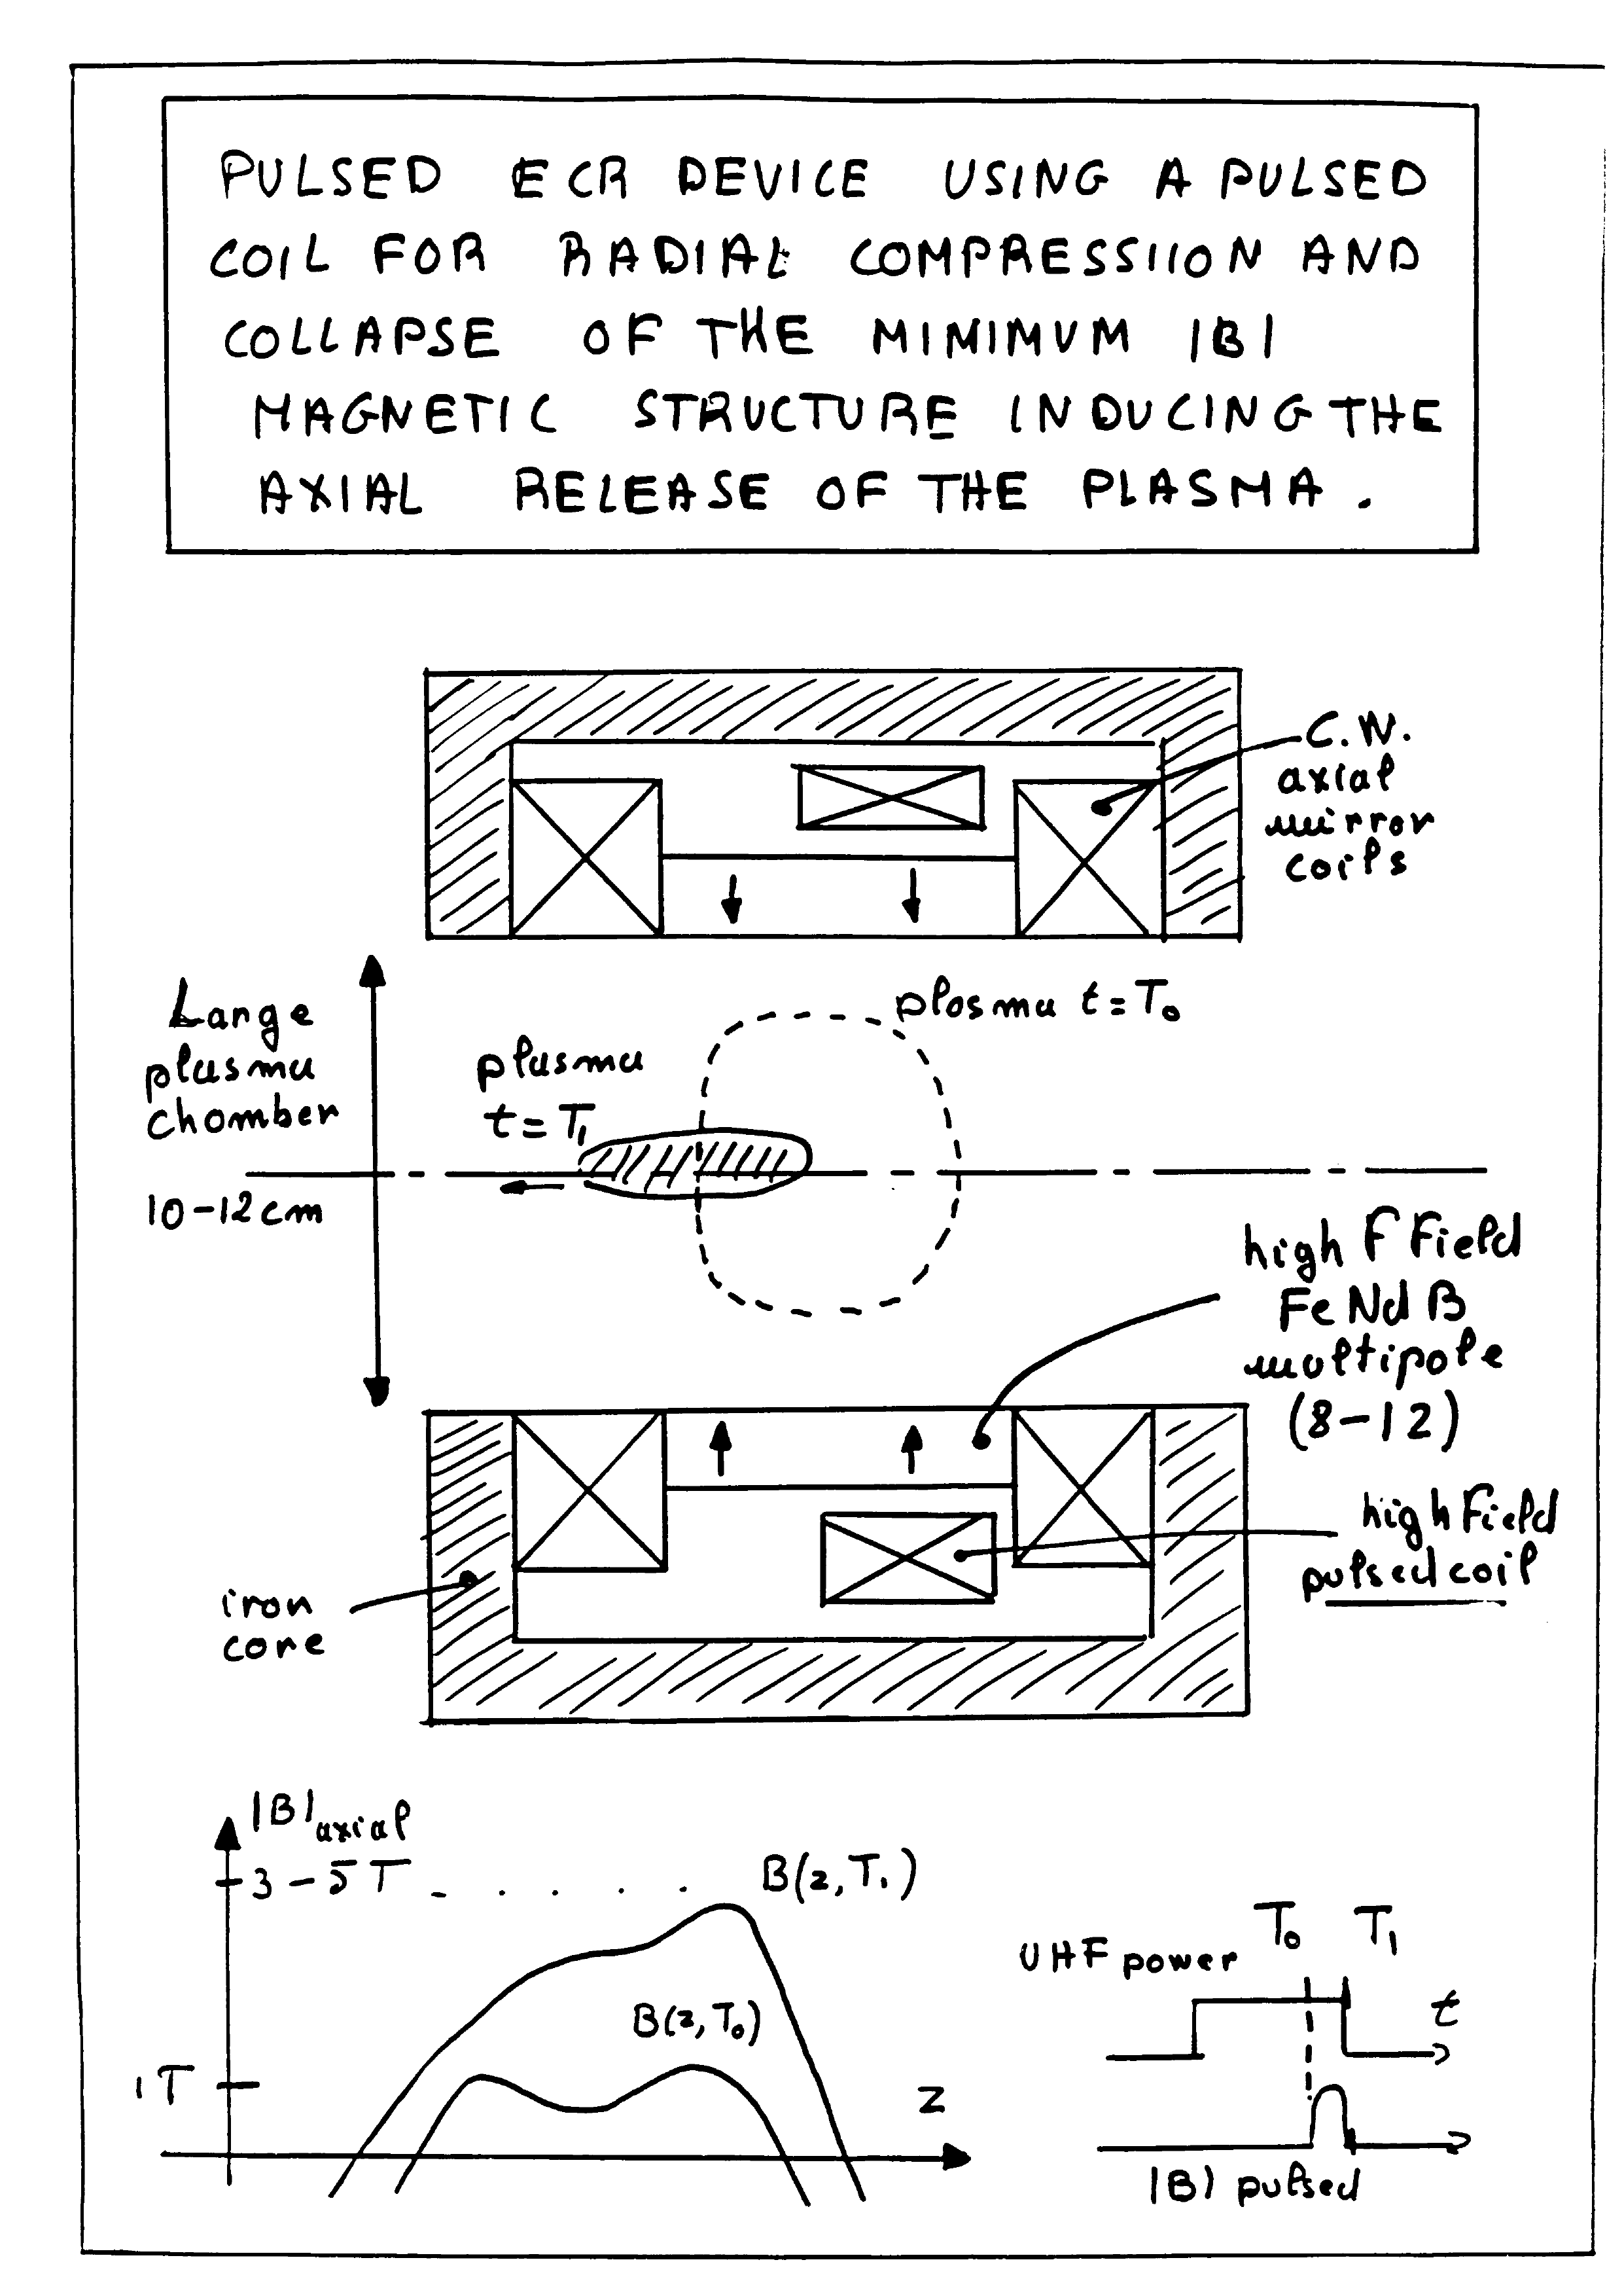 PULSED ECR DEVICE USING A PULSED
COIL FOR RADIAL COMPRESSIION AND
COLLAPSE OF THE MINIMUM |B|
MAGNETIC STRUCTURE INDUCING THE
AXIAL RELEASE OF THE PLASMA.
C.W.
axial
mirror
coils
Large
plasma
chamber
10-12cm
plasma t=T₀
plasma
t=T₁
high F Field
FeNdB
multipole
(8-12)
high Field
pulsed coil
iron
core
|B|axial
3-5T
B(z,T₁)
B(z,T₀)
1T
z
UHF power
T₀ T₁
t
|B| pulsed